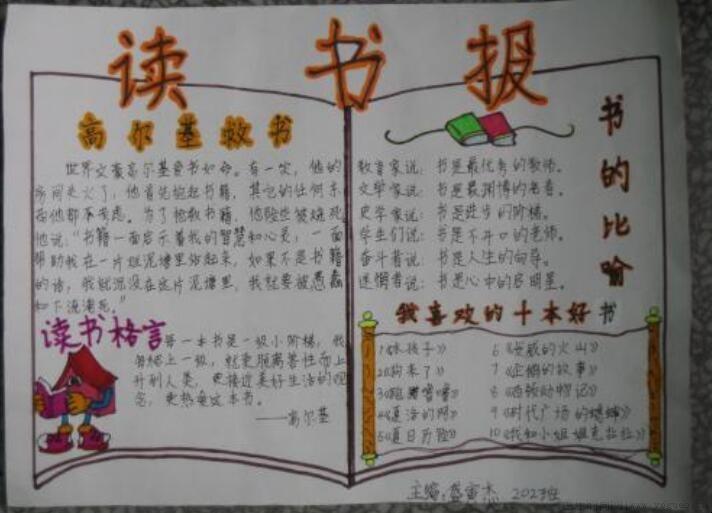 读书报
高尔基救书
世界文豪高尔基爱书如命。有一次，他的
房间失火了，他首先抱起书籍，其它的任何东
西他都不考虑。为了抢救书籍，他险些被烧死。
他说：“书籍一面启示着我的智慧和心灵，一面
帮助我在一片烂泥塘里站起来，如果不是书籍
的话，我就沉没在这片泥塘里，我就要被愚蠢
和下流淹死。”
读书格言
每一本书是一级小阶梯，我
每爬上一级，就更脱离兽性而上
升到人类，更接近美好生活的观
念，更热爱这本书。
——高尔基
书的比喻
教育家说：书是最优秀的教师。
文学家说：书是最渊博的老者。
史学家说：书是进步的阶梯。
学生们说：书是不开口的老师。
奋斗者说：书是人生的向导。
迷惘者说：书是心中的启明星。
我喜欢的十本好书
1《水孩子》
2《狗来了》
4《夏洛的网》
5《夏日历险》
6《发威的火山》
7《企鹅的故事》
8《西顿动物记》
9《时代广场的蟋蟀》
10《我和小姐姐克拉拉》
主编：盛寅杰 202班